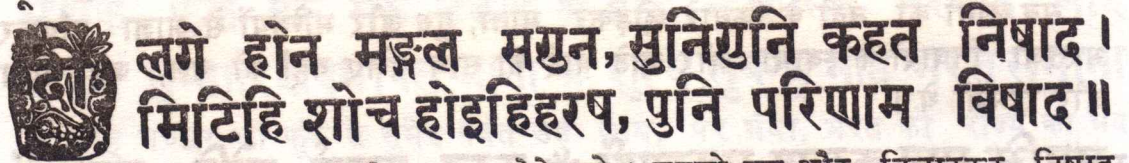 दो॰
लगे होन मङ्गल सगुन, सुनिगुनि कहत निषाद।
मिटिहि शोच होइहिहरष, पुनि परिणाम विषाद॥